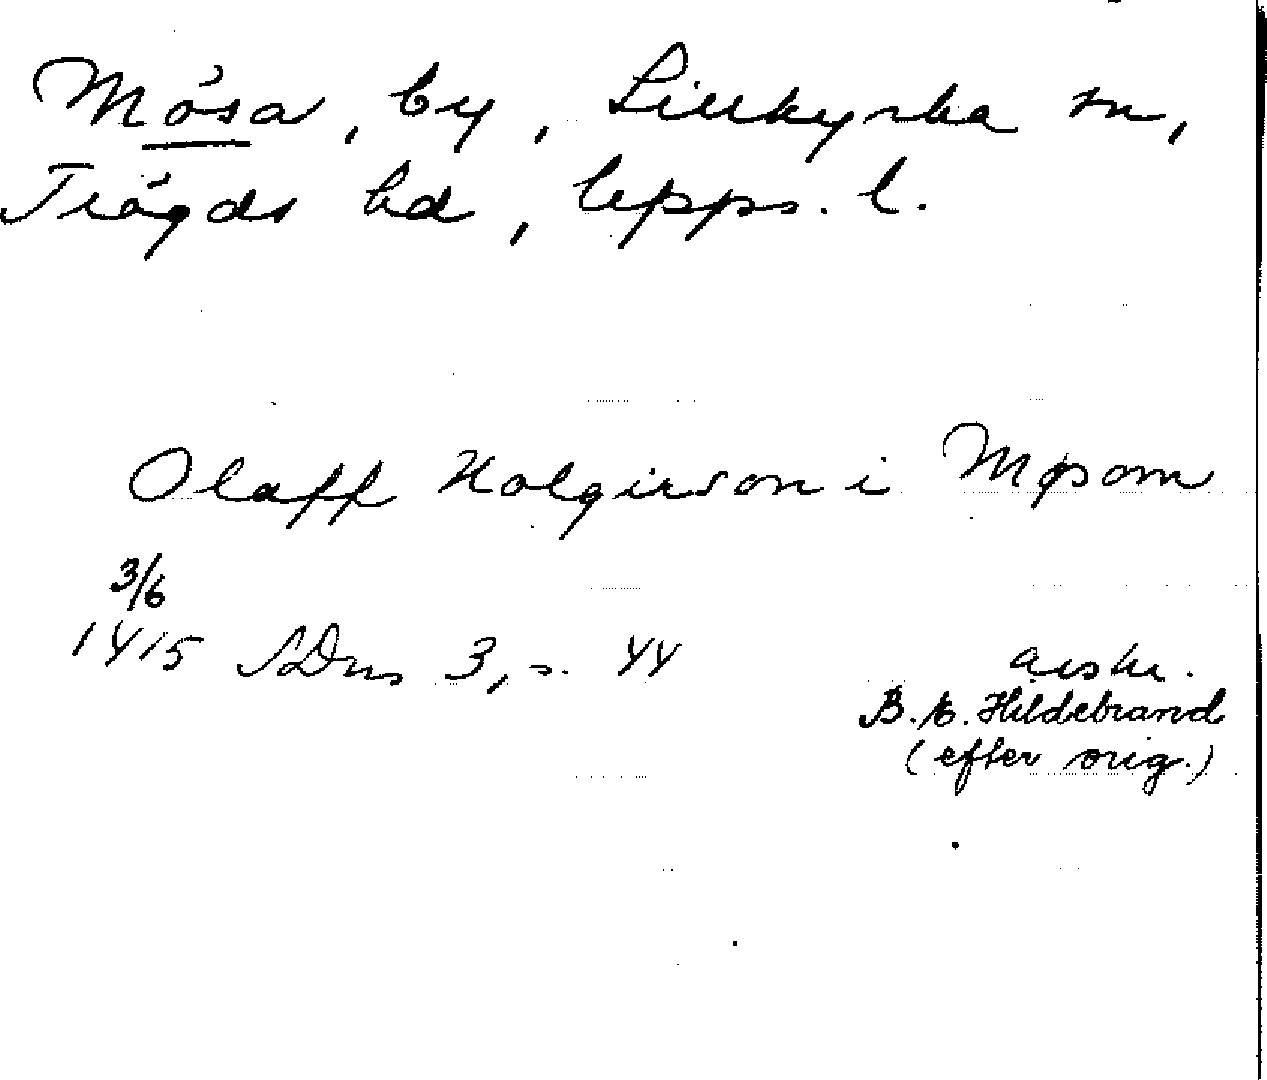 Mösa, by, Lillkyrka sn,
Trögds hd, Upps. l.
Olaff Holgirson i Møsom
3/6
1415 SDns 3, s. 44
avskr.
B. E. Hildebrand
(efter orig.)